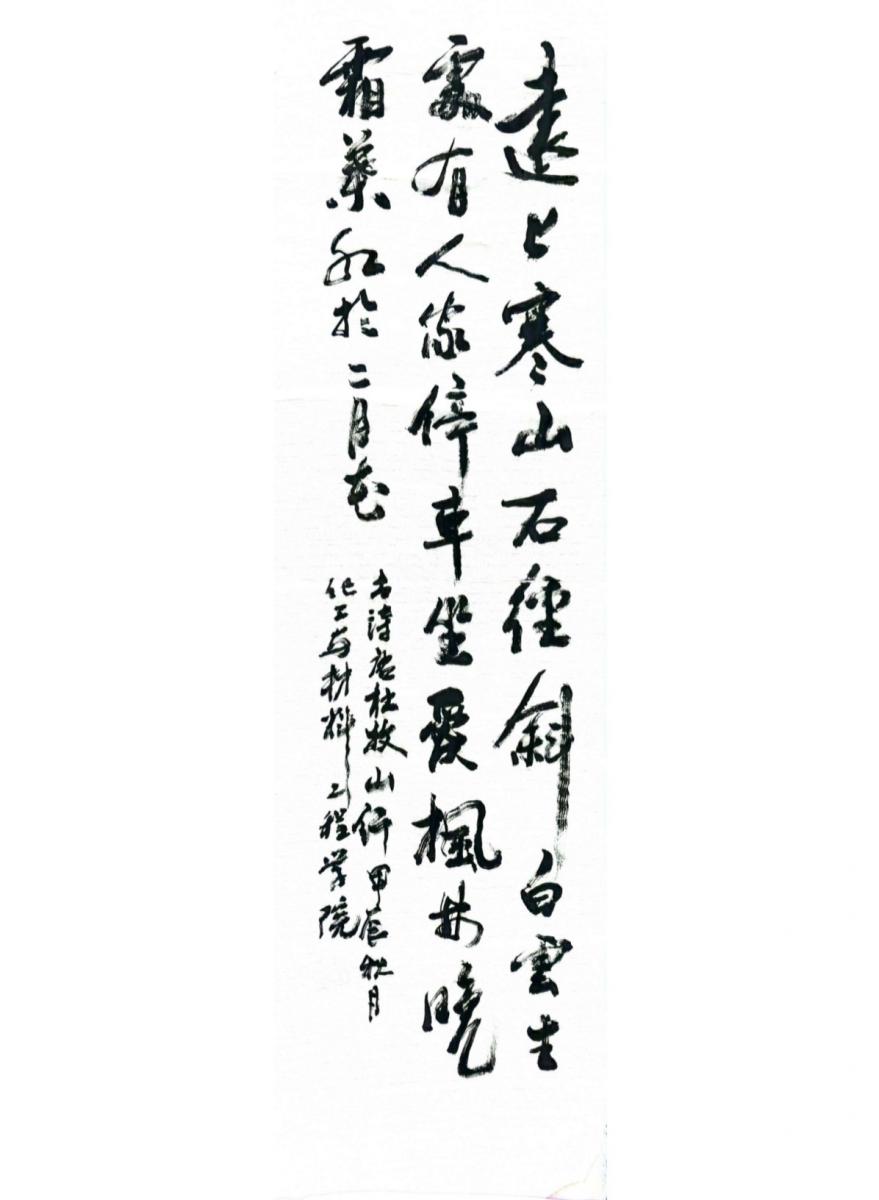 遠上寒山石徑斜白雲生
處有人家停車坐愛楓林晚
霜葉紅於二月花
古詩唐杜牧山行甲辰秋月
化工与材料工程学院